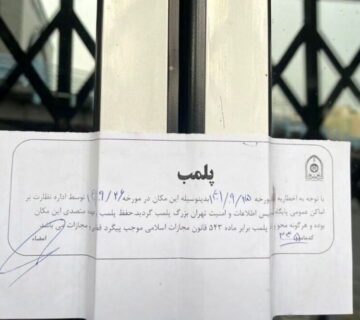 پلمب
با توجه به اخطاریه مورخه ۱۴۰۱/۹/۲۵ بدینوسیله این مکان در مورخه ۱۴۰۱/۹/۲۶ توسط اداره نظارت بر
اماکن عمومی پایگاه پلیس اطلاعات و امنیت تهران بزرگ پلمب گردید. حفظ پلمب بعهده متصدی این مکان
بوده و هرگونه محو پلمب برابر ماده ۵۴۳ قانون مجازات اسلامی موجب پیگرد قضایی مجازات می باشد.
امضاء